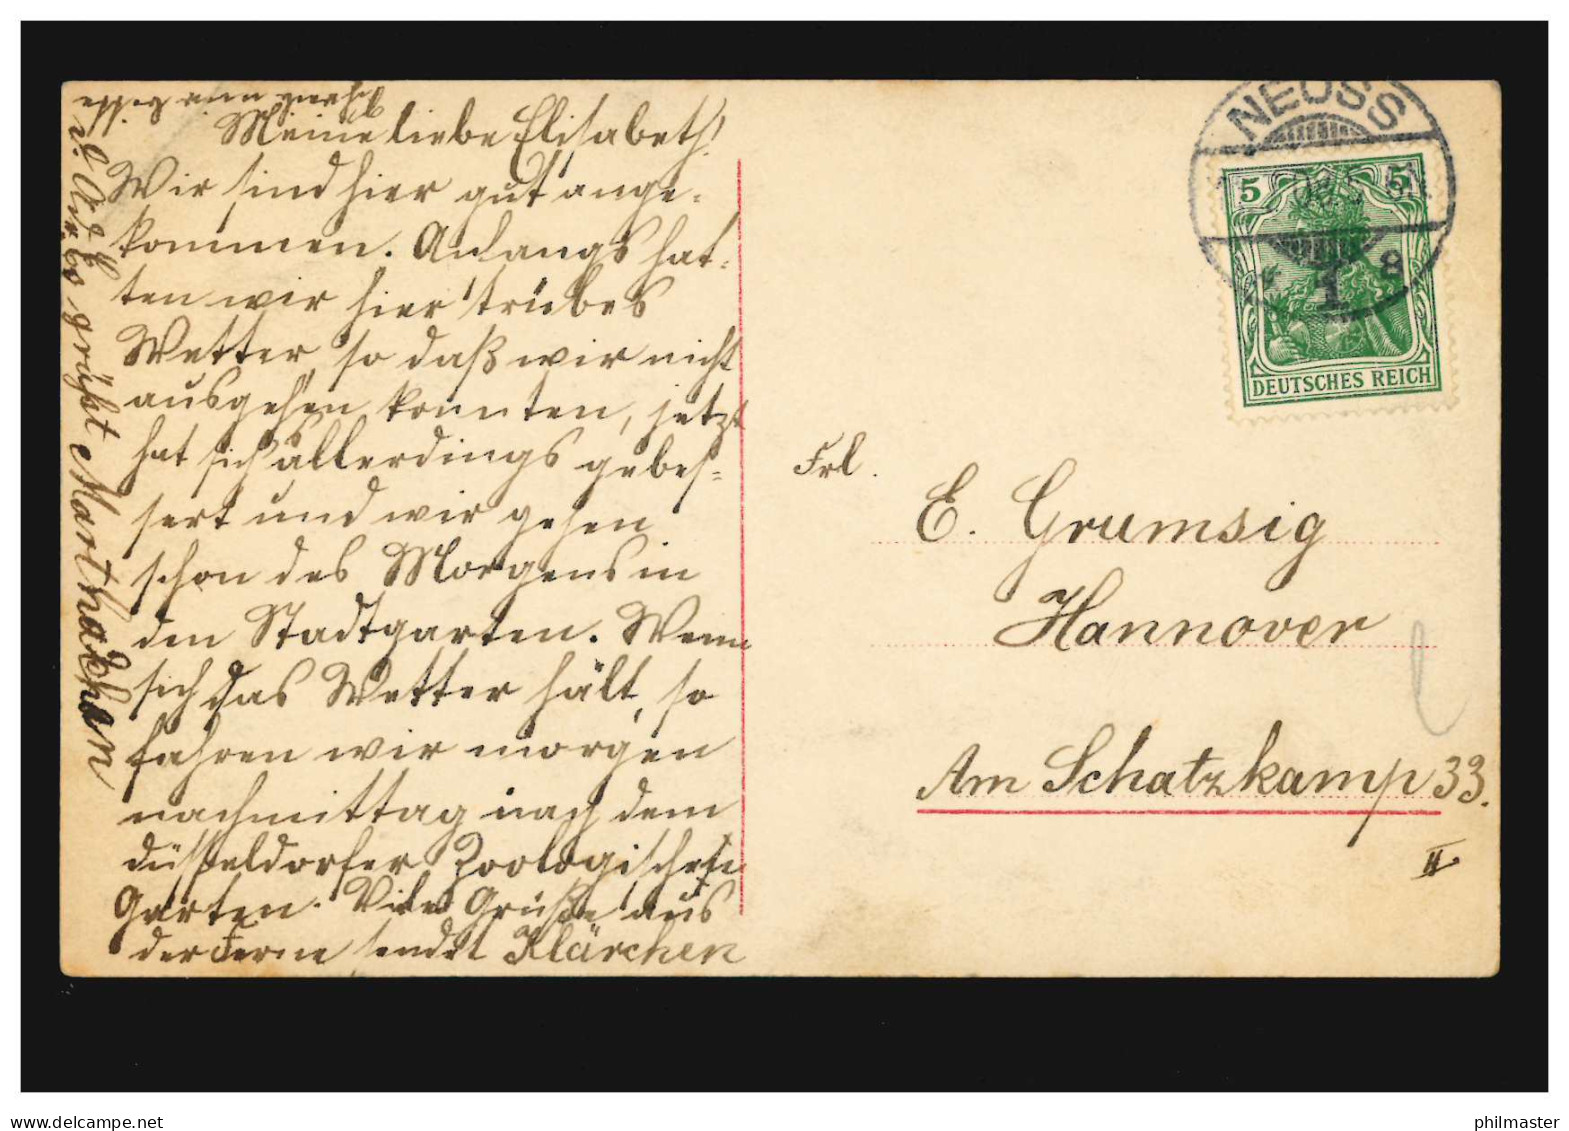 Meine liebe Elisabeth!
Wir sind hier gut ange-
kommen. Anfangs hat-
ten wir hier trübes
Wetter, so daß wir nicht
ausgehen konnten, jetzt
hat sich's allerdings gebes-
sert und wir gehen
schon des Morgens in
den Stadtgarten. Wenn
sich das Wetter hält, so
fahren wir morgen
nachmittag nach dem
düsseldorfer Zoologischen
Garten. Viele Grüße aus
der Ferne sendet Klärchen
grüßt Marthachen
NEUSS
5 5
1
8
DEUTSCHES REICH
Frl.
E. Grumsig
Hannover
Am Schatzkamp 33.
II
www.delcampe.net
philmaster